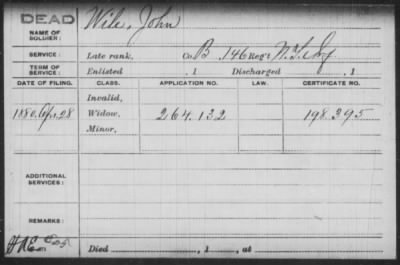 DEAD
NAME OF SOLDIER: Wile, John
SERVICE: Late rank, Co. B, 146 Reg't N.Y. Inf
TERM OF SERVICE: Enlisted , 1 Discharged , 1
DATE OF FILING. CLASS. APPLICATION NO. LAW. CERTIFICATE NO.
Invalid,
1880, Apr. 28 Widow, 264.132 198.395
Minor,
ADDITIONAL SERVICES:
REMARKS:
Died , 1 , at